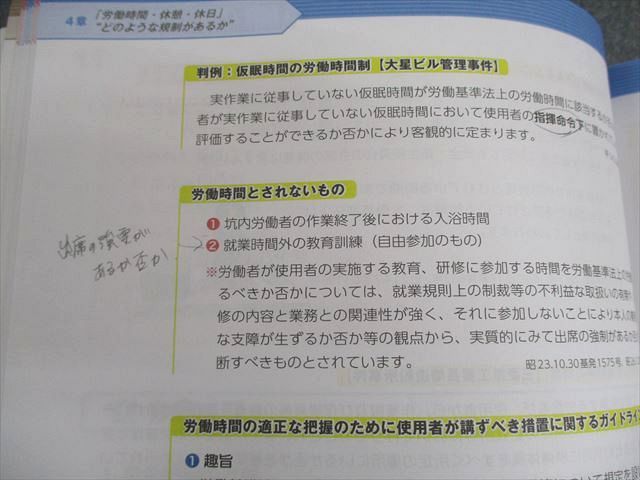 4章 「労働時間・休憩・休日」
“どのような規制があるか”
判例：仮眠時間の労働時間制【大星ビル管理事件】
実作業に従事していない仮眠時間が労働基準法上の労働時間に該当するか
者が実作業に従事していない仮眠時間において使用者の指揮命令下に置か
評価することができるか否かにより客観的に定まります。
労働時間とされないもの
❶ 坑内労働者の作業終了後における入浴時間
❷ 就業時間外の教育訓練（自由参加のもの）
出席の強要が
あるか否か
※労働者が使用者の実施する教育、研修に参加する時間を労働基準法上の
るべきか否かについては、就業規則上の制裁等の不利益な取扱いの有無や
修の内容と業務との関連性が強く、それに参加しないことにより本人の
な支障が生ずるか否か等の観点から、実質的にみて出席の強制があるか
断すべきものとされています。
昭23.10.30基発1575号
労働時間の適正な把握のために使用者が講ずべき措置に関するガイドライ
❶ 趣旨
について規定を設